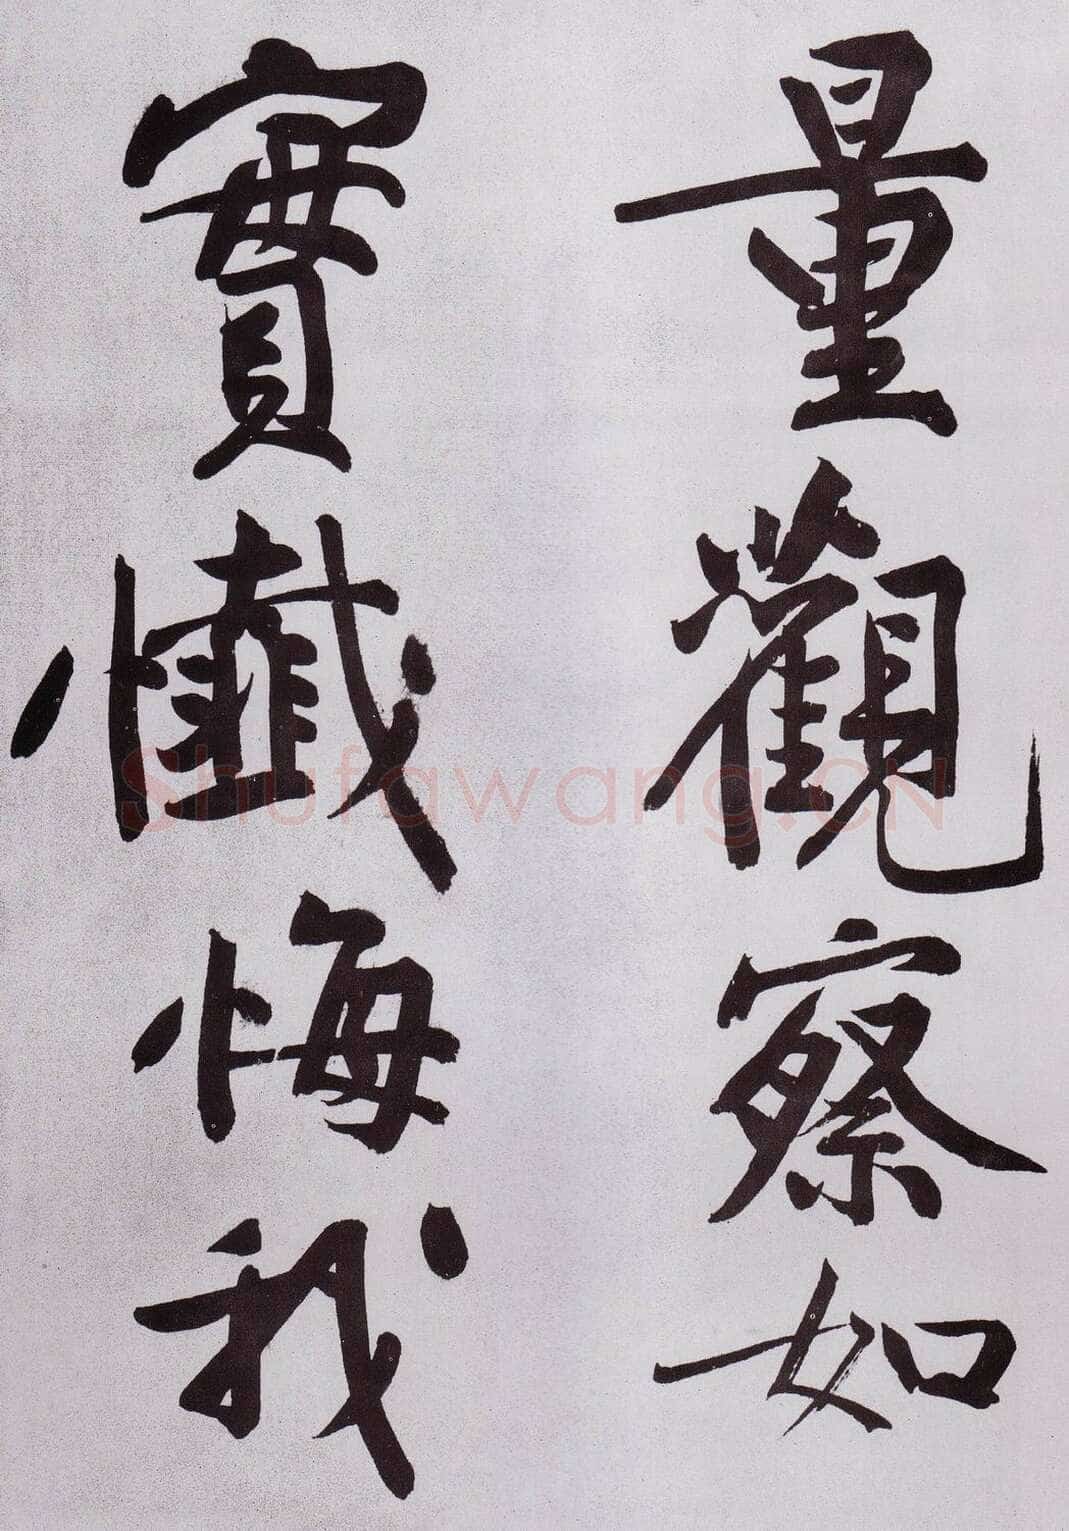 量觀察如
實懺悔我
Shufawang.CN